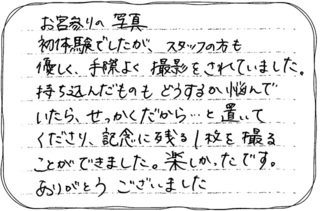 お宮参りの 写真
初体験でしたが、スタッフの方も
優しく、手際よく 撮影をされていました。
持ち込んだものも どうするか 悩んで
いたら、せっかくだから…と 置いて
くださり、記念に残る 1枚を 撮る
ことができました。楽しかったです。
ありがとう ございました